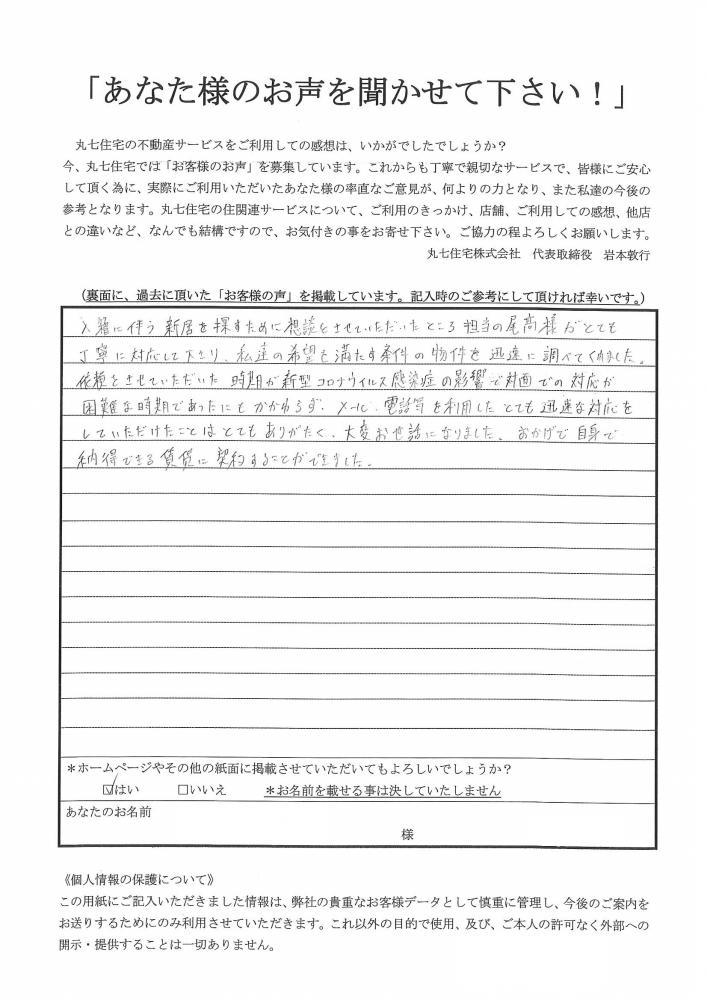 「あなた様のお声を聞かせて下さい！」
丸七住宅の不動産サービスをご利用しての感想は、いかがでしたでしょうか？
今、丸七住宅では「お客様のお声」を募集しています。これからも丁寧で親切なサービスで、皆様にご安心
して頂く為に、実際にご利用いただいたあなた様の率直なご意見が、何よりの力となり、また私達の今後の
参考となります。丸七住宅の住関連サービスについて、ご利用のきっかけ、店舗、ご利用しての感想、他店
との違いなど、なんでも結構ですので、お気付きの事をお寄せ下さい。ご協力の程よろしくお願いします。
丸七住宅株式会社　代表取締役　岩本敦行
（裏面に、過去に頂いた「お客様の声」を掲載しています。記入時のご参考にして頂ければ幸いです。）
入籍に伴う新居を探すために相談をさせていただいたところ担当の尾高様がとても
丁寧に対応して下さり、私達の希望も満たす条件の物件を迅速に調べてくれました。
依頼をさせていただいた時期が新型コロナウイルス感染症の影響で対面での対応が
困難な時期であったにもかかわらず、メール、電話等を利用したとても迅速な対応を
していただけたことはとてもありがたく、大変お世話になりました。おかげで自身で
納得できる賃貸に契約することができました。
＊ホームページやその他の紙面に掲載させていただいてもよろしいでしょうか？
☑はい　□いいえ　＊お名前を載せる事は決していたしません
あなたのお名前
様
《個人情報の保護について》
この用紙にご記入いただきました情報は、弊社の貴重なお客様データとして慎重に管理し、今後のご案内を
お送りするためにのみ利用させていただきます。これ以外の目的で使用、及び、ご本人の許可なく外部への
開示・提供することは一切ありません。